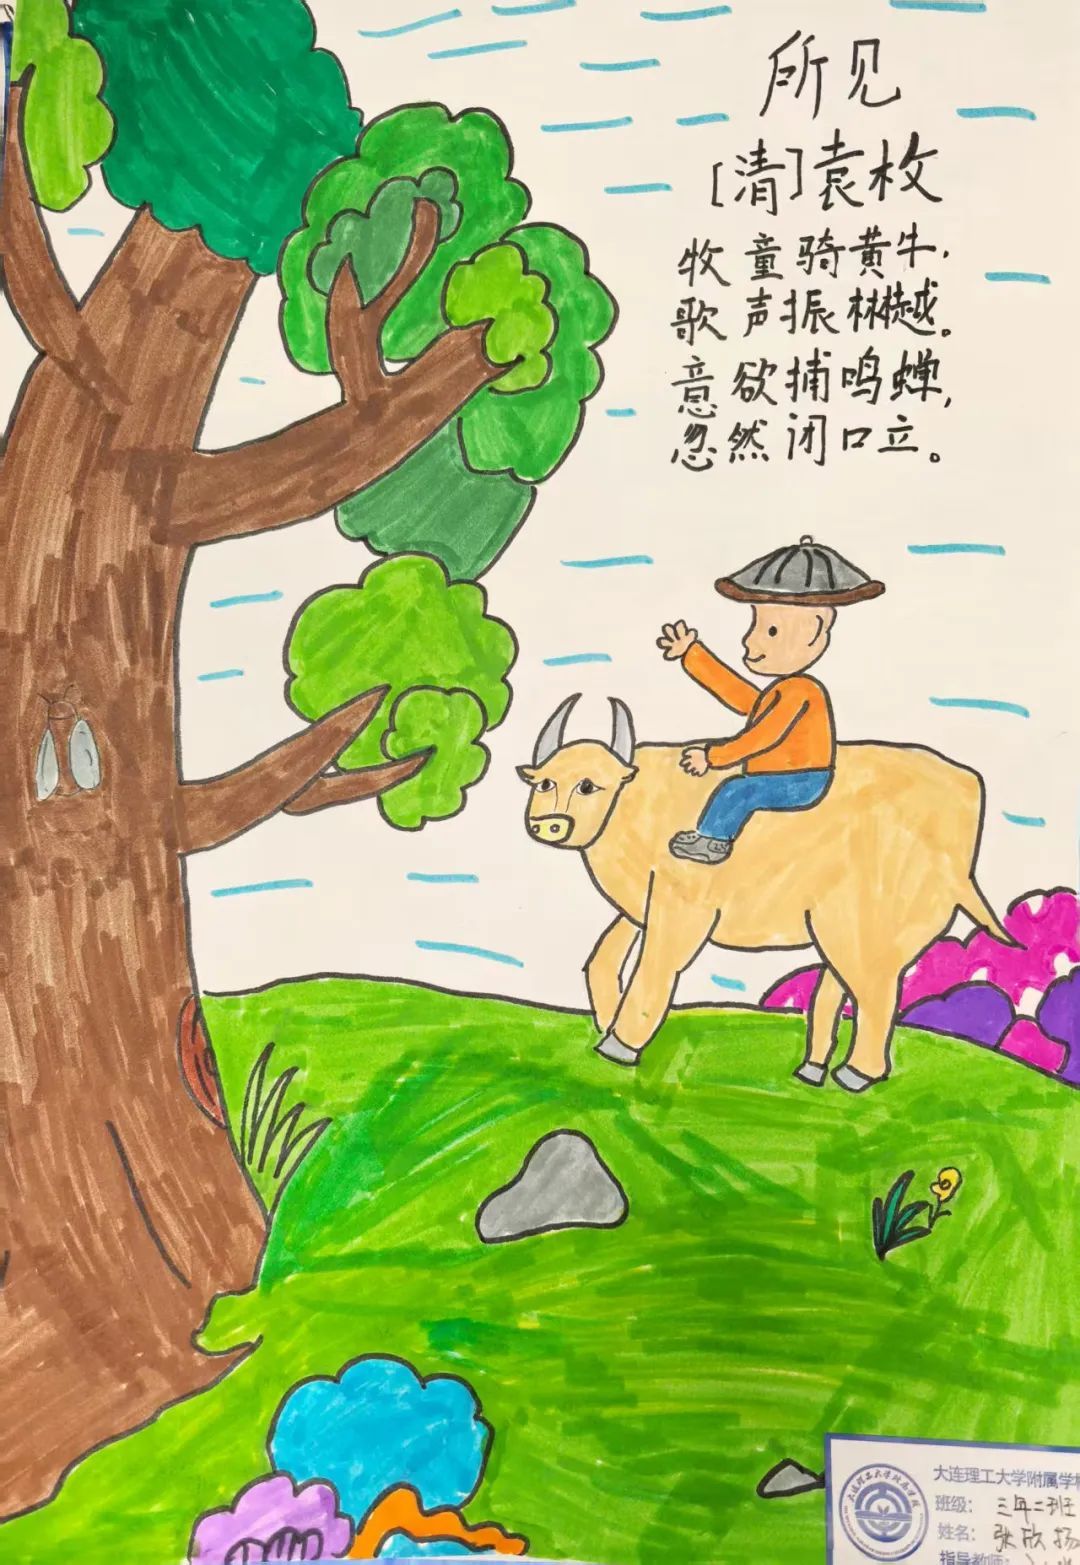 所见
[清]袁枚
牧童骑黄牛,
歌声振林樾。
意欲捕鸣蝉,
忽然闭口立。
大连理工大学附属学校
班级: 三年二班
姓名: 张欣扬
指导教师